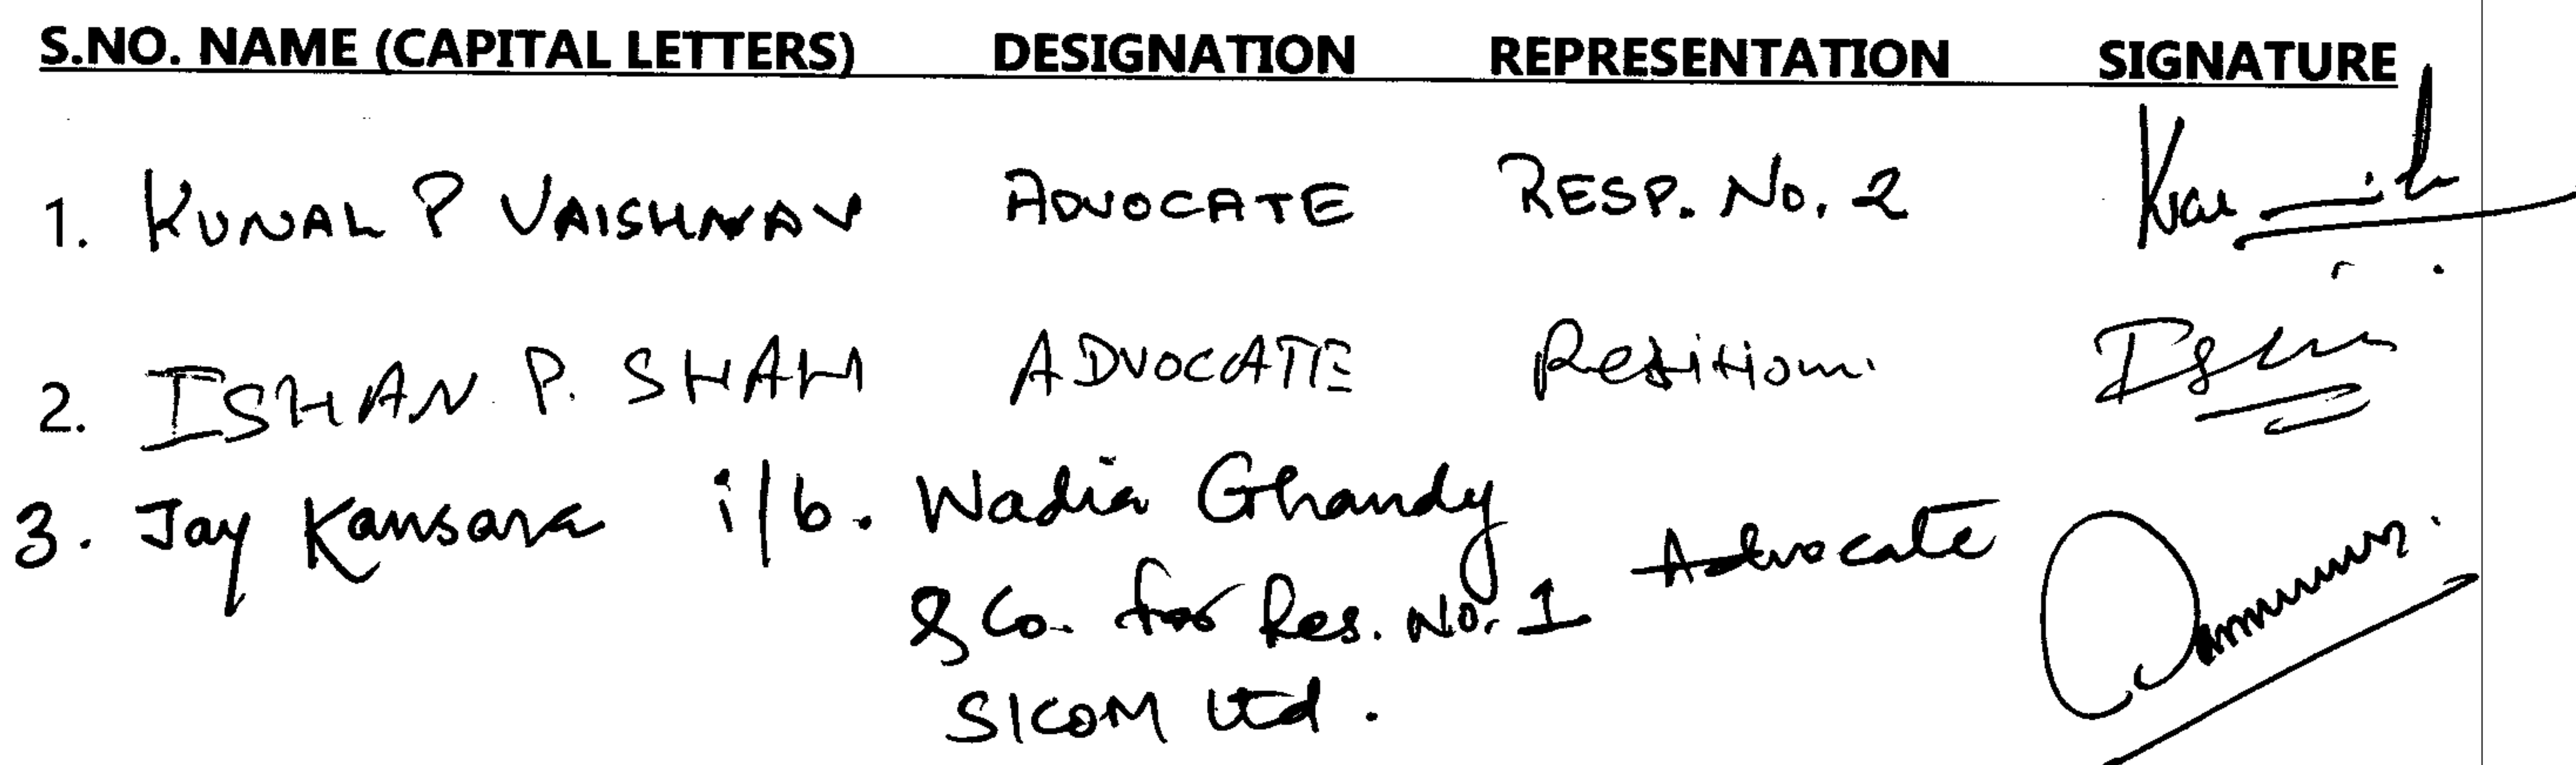 S.NO. NAME (CAPITAL LETTERS) DESIGNATION REPRESENTATION SIGNATURE
1. KUNAL P VAISHNAV ADVOCATE RESP. No. 2
2. ISHAN P. SHAH ADVOCATE Petition.
3. Jay Kansara i/b. Wadia Ghandy Advocate
& Co. for Res. No. 1
SICOM Ltd.